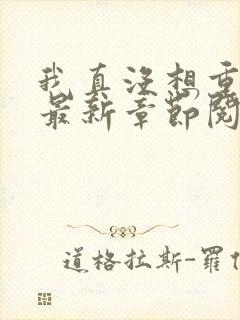 我真没想重
最新章节阅
道格拉斯-罗